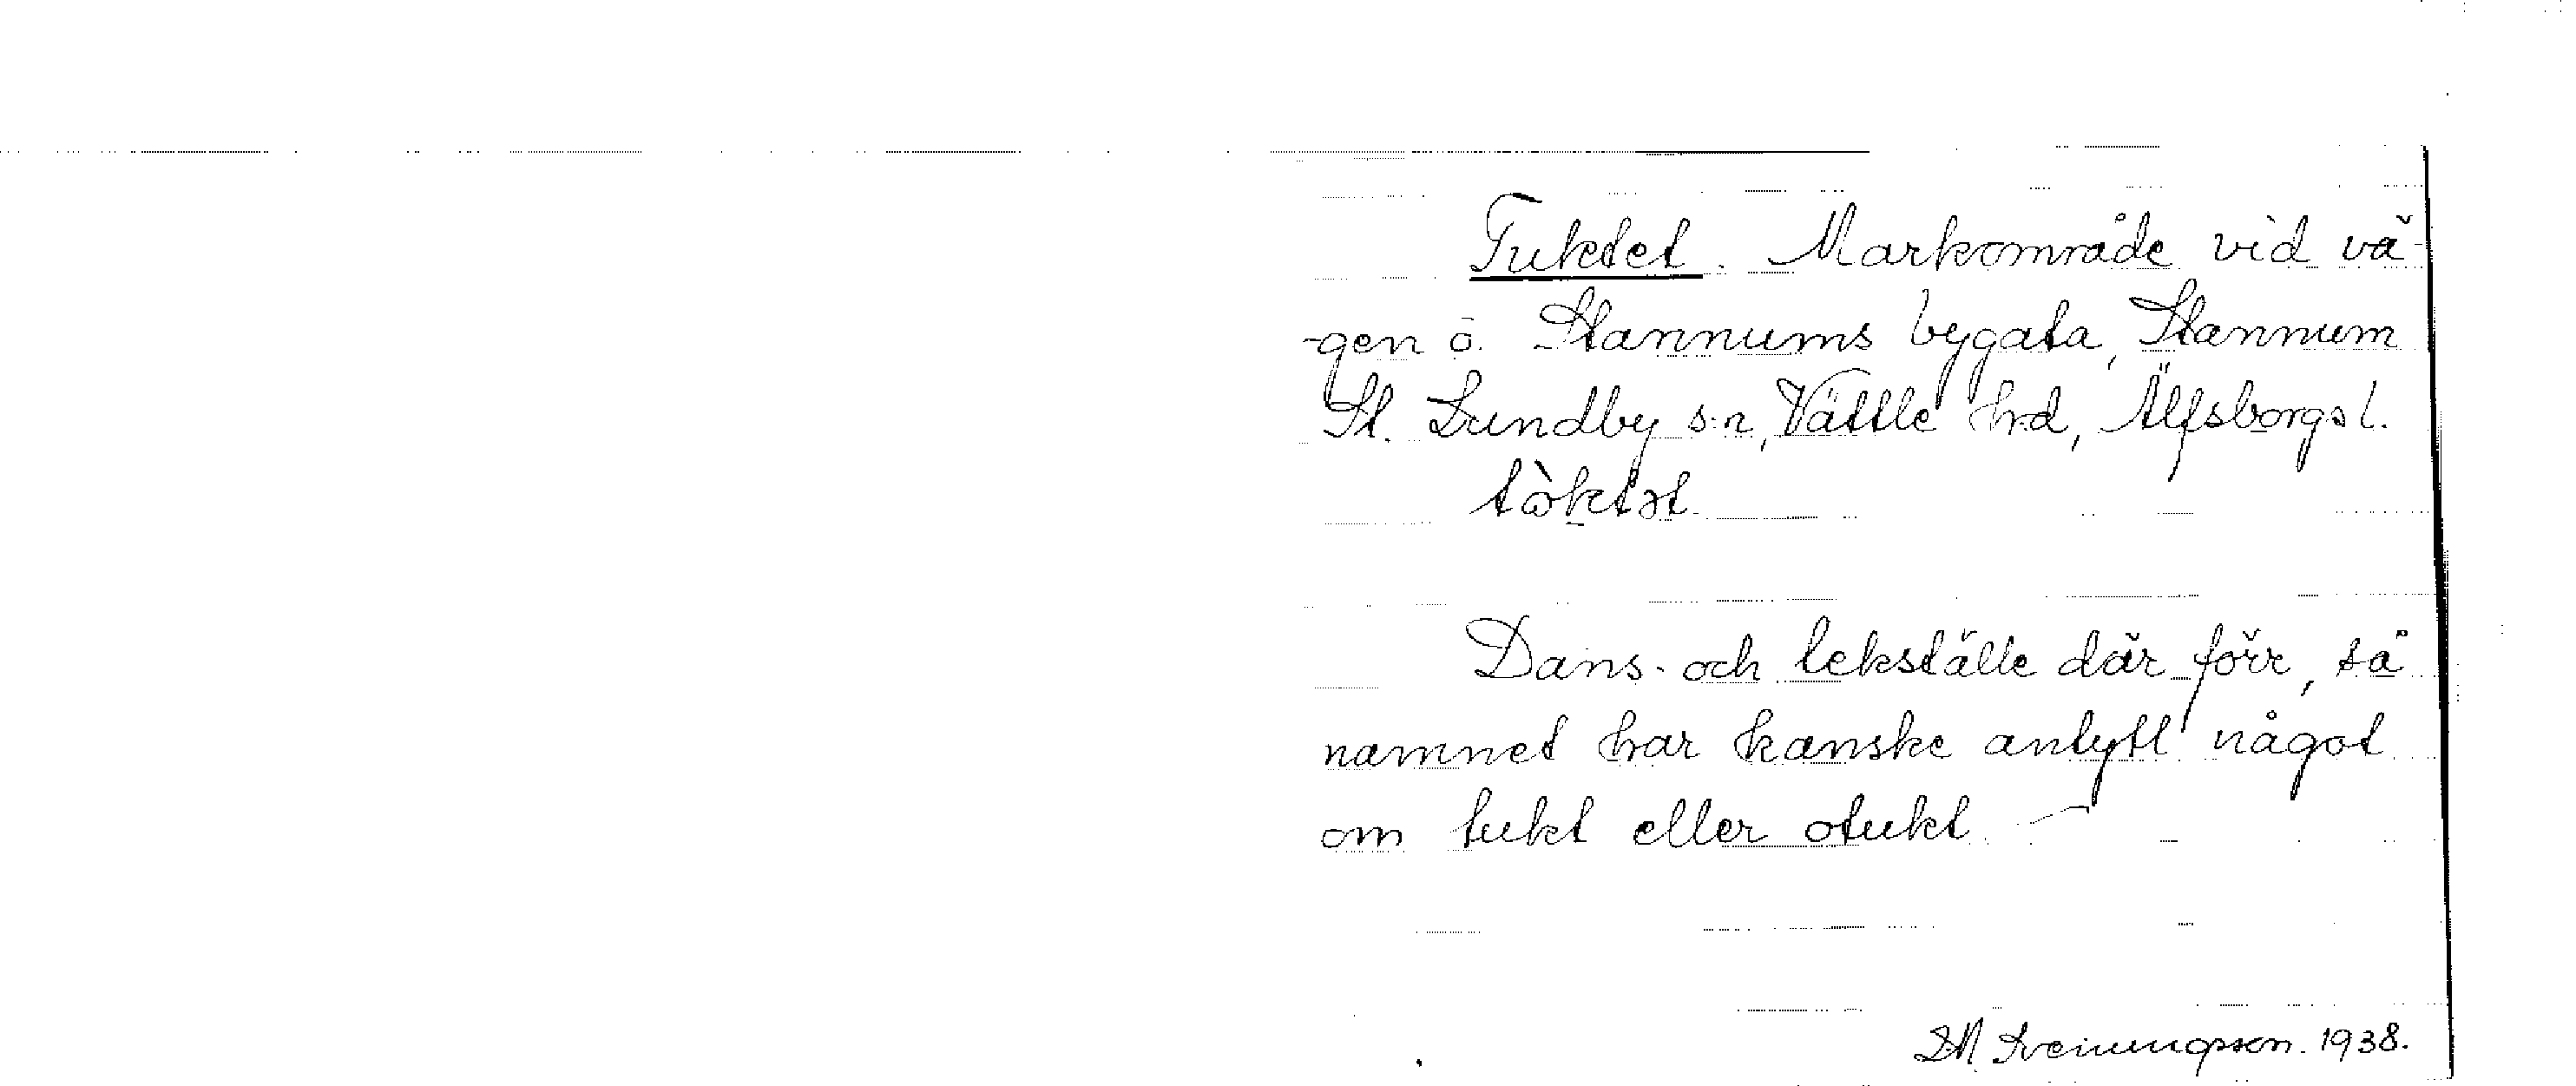 Tuktet. Markområde vid vä-
-gen ö. Stannums bygata, Stannum
St. Lundby s:n, Vättle hrd, Älfsborgs l.
tòktət
Dans- och lekställe där förr, så
namnet har kanske antytt något
om tukt eller otukt.
1938.